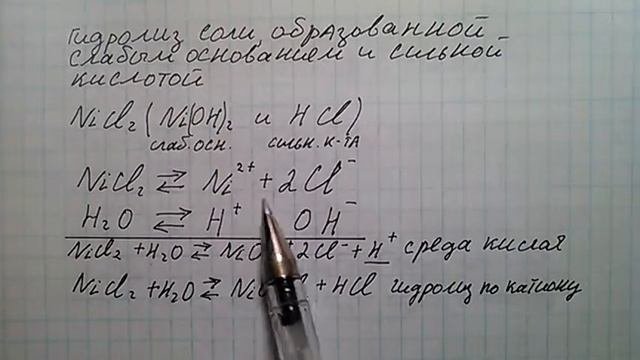 Гидролиз соли, образованной
слабым основанием и сильной
кислотой
NiCl₂ (Ni(OH)₂ и HCl)
слаб. осн. сильн. к-та
NiCl₂ ⇄ Ni²⁺ + 2Cl⁻
H₂O ⇄ H⁺ OH⁻
NiCl₂ + H₂O ⇄ 2Cl⁻ + H⁺ среда кислая
NiCl₂ + H₂O ⇄ + HCl гидролиз по катиону